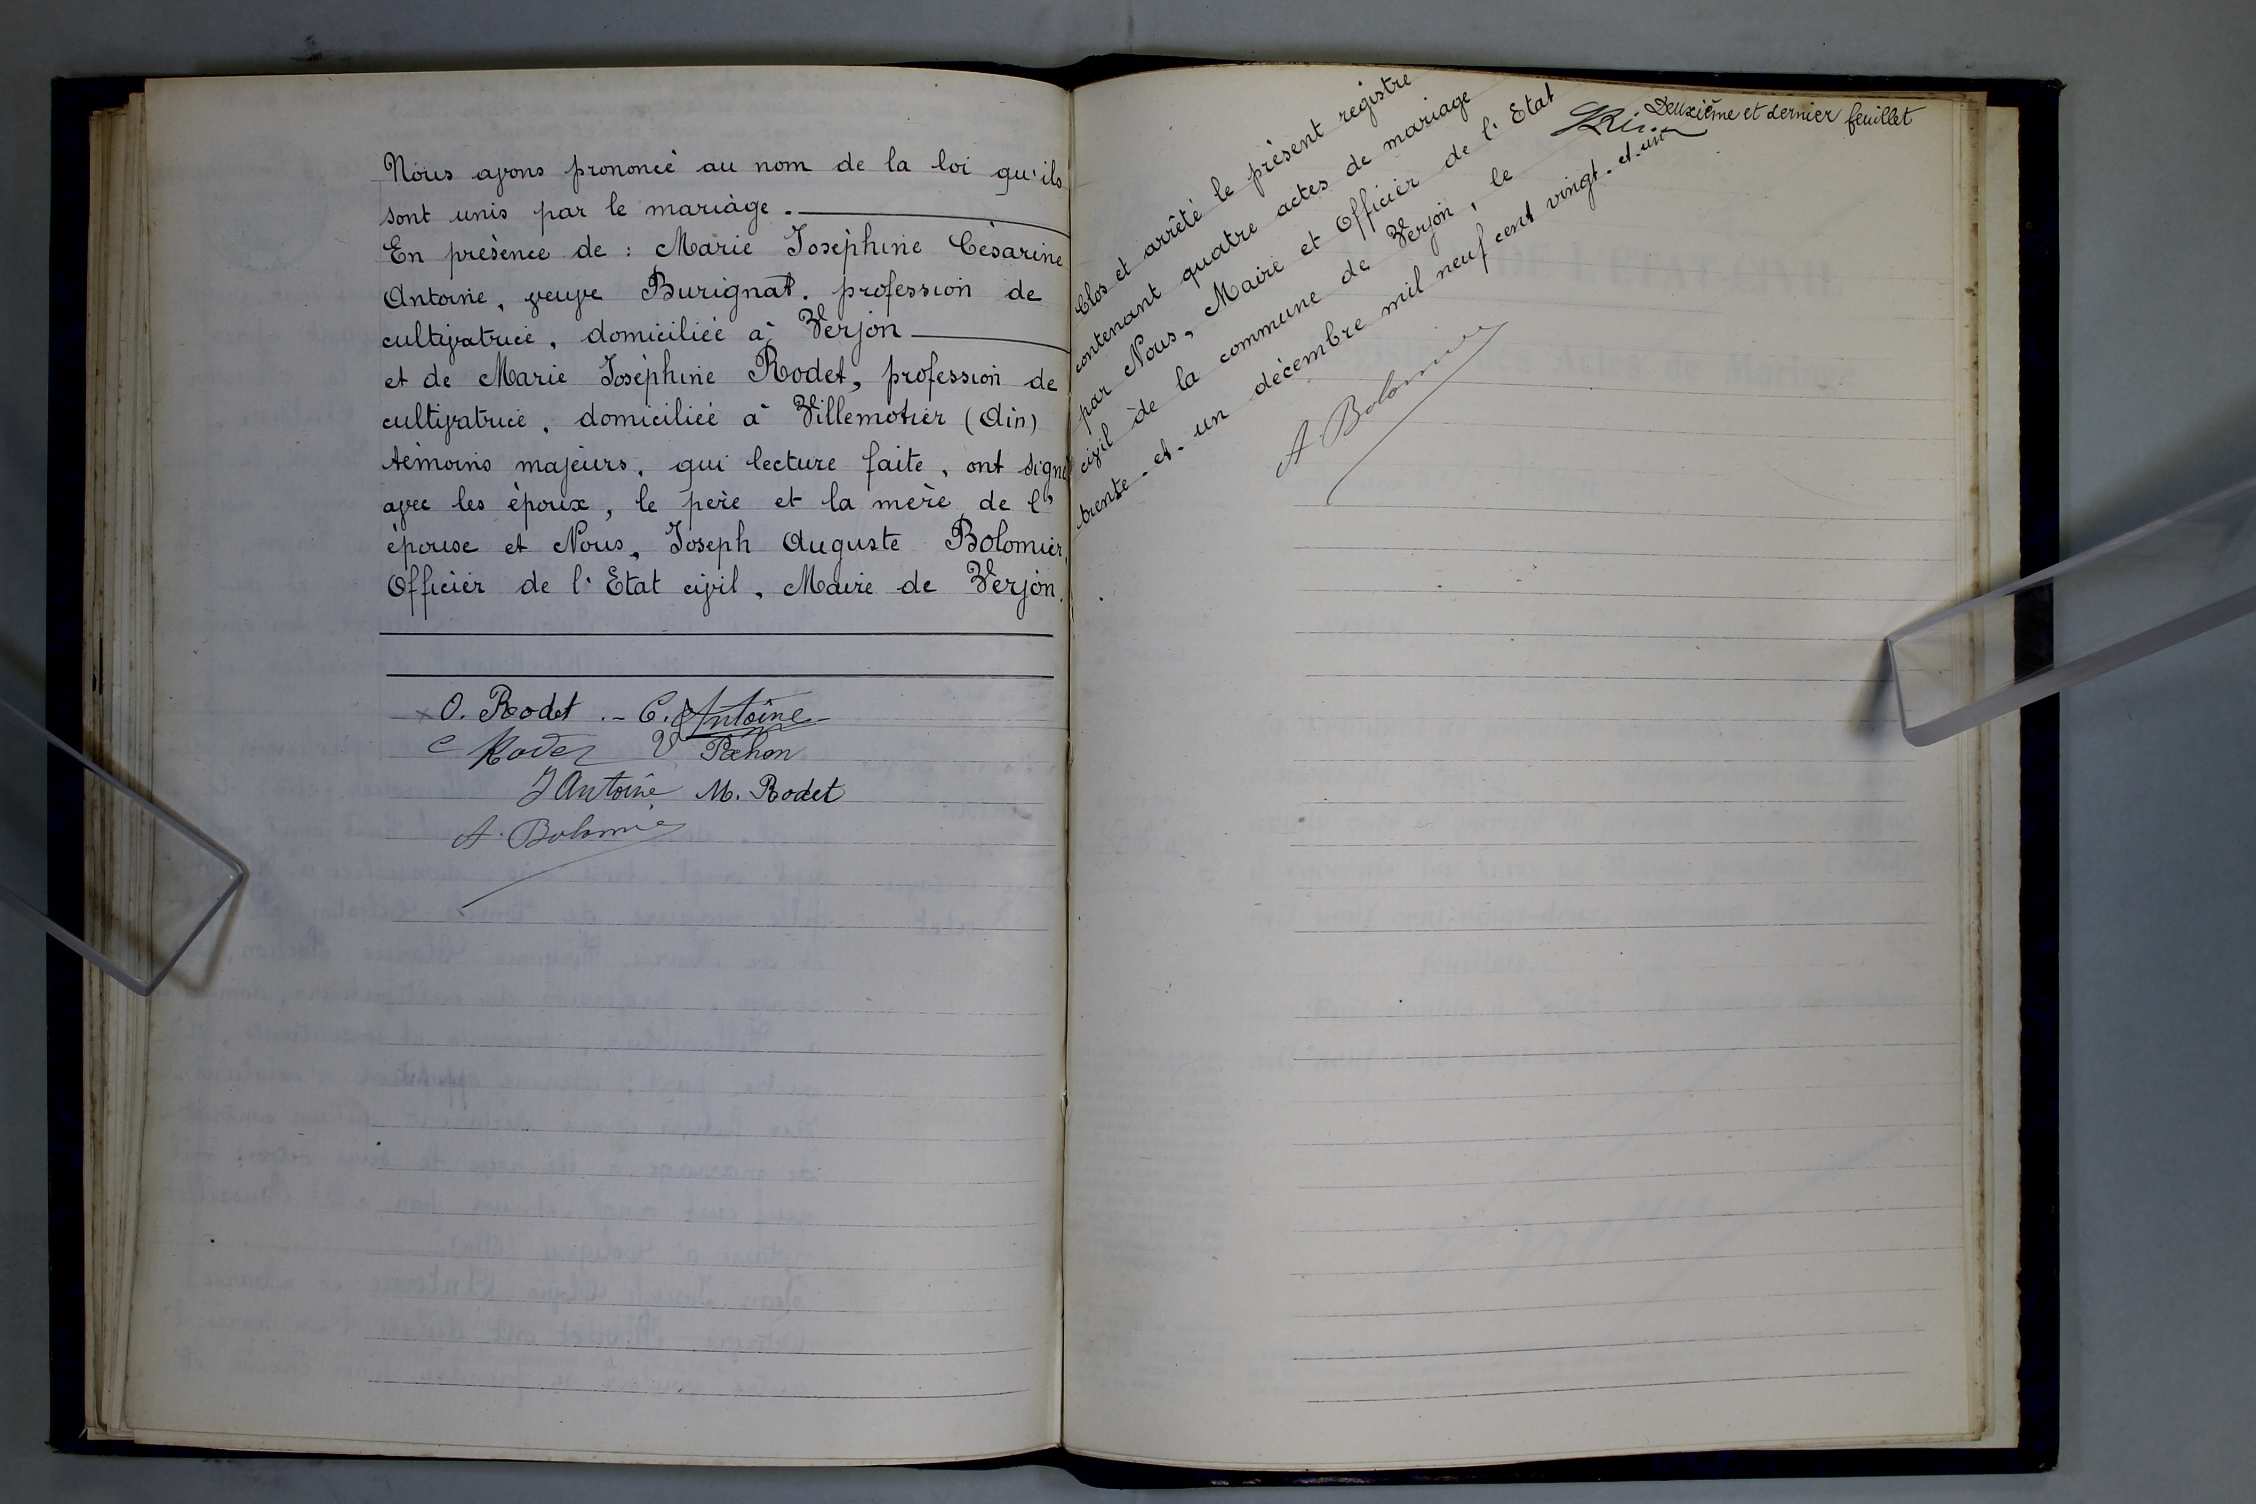 Nous avons prononcé au nom de la loi qu'ils
sont unis par le mariage.
En présence de : Marie Joséphine Césarine
Antoine, veuve Burignat. profession de
cultivatrice, domiciliée à Verjon
et de Marie Joséphine Rodet, profession de
cultivatrice, domiciliée à Villemotier (Ain)
témoins majeurs, qui lecture faite, ont signé
avec les époux, le père et la mère de l'
épouse et Nous, Joseph Auguste Bolomier,
Officier de l'Etat civil, Maire de Verjon.
O. Rodet. - C. Antoine
C Rodet V Pochon
J Antoine M. Rodet
A. Bolomier
Deuxième et dernier feuillet
Clos et arrêté le présent registre
contenant quatre actes de mariage
par Nous, Maire et Officier de l'Etat
civil de la commune de Verjon, le
trente-et-un décembre mil neuf cent vingt-et-un
A. Bolomier